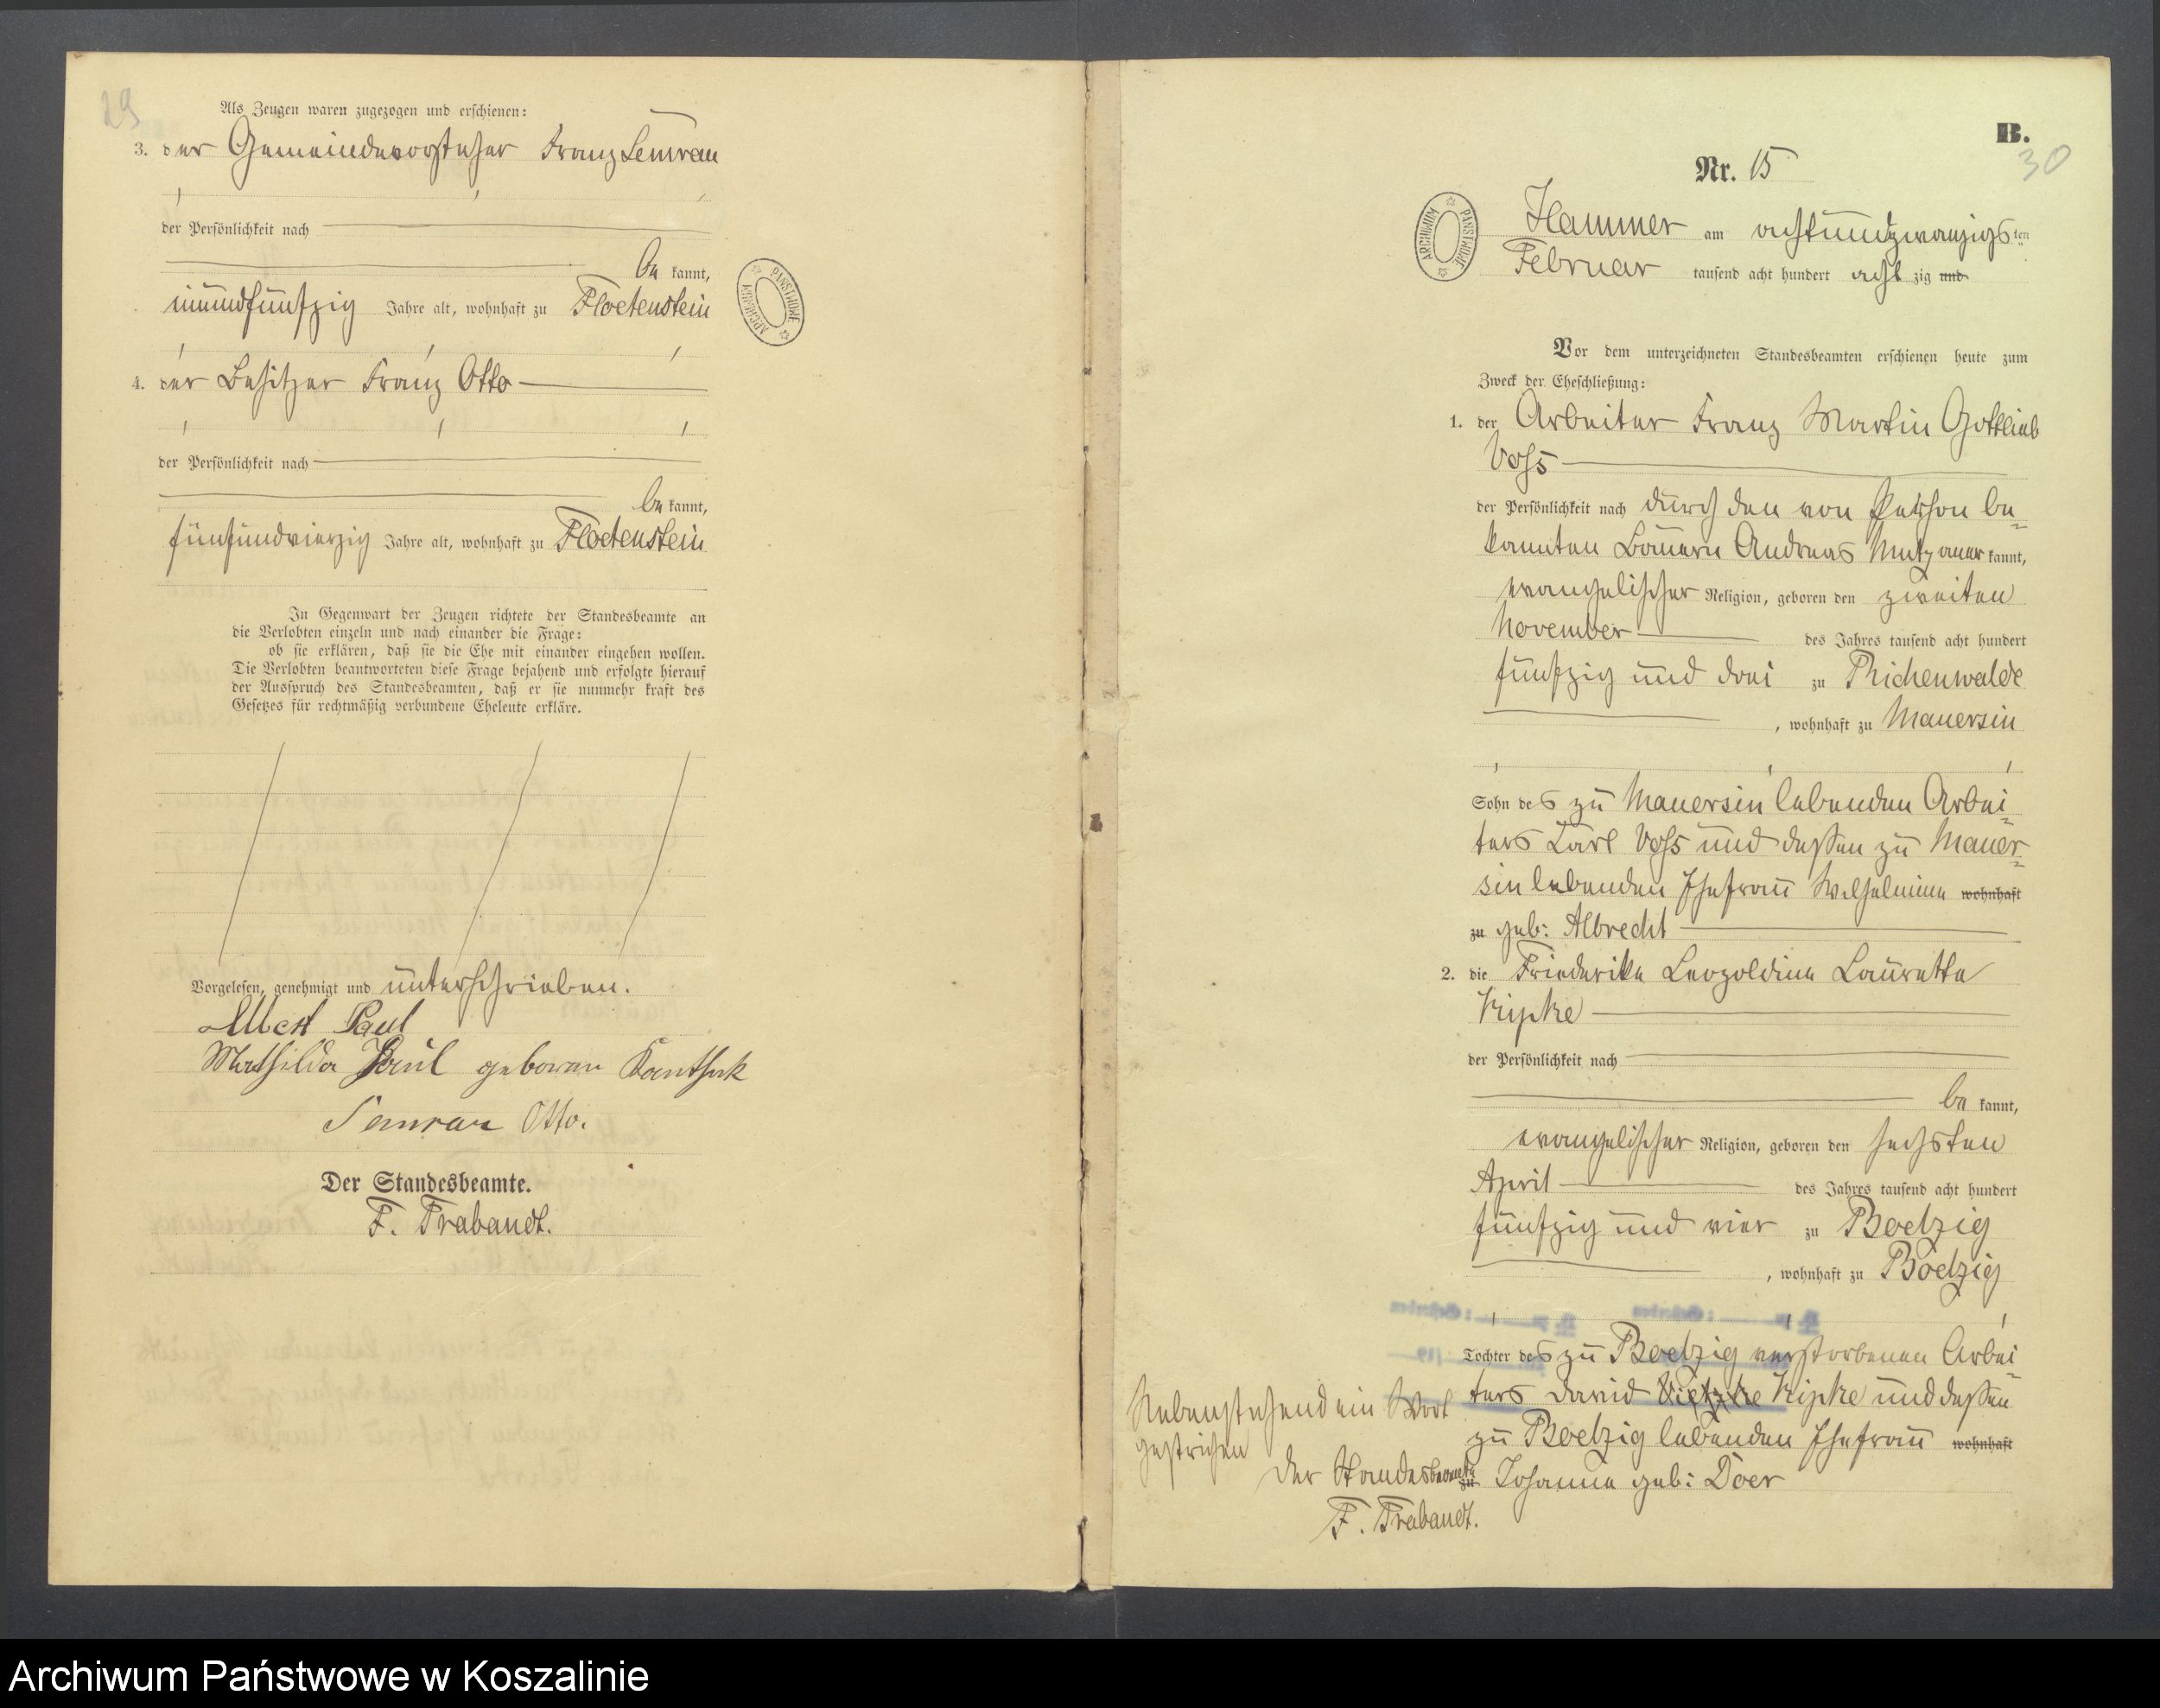 29
Als Zeugen waren zugezogen und erschienen:
3. der Gemeindevorsteher Franz Semrau
der Persönlichkeit nach
be kannt,
neunundfünfzig Jahre alt, wohnhaft zu Floetenstein
4. der Besitzer Franz Otto
der Persönlichkeit nach
be kannt,
fünfundvierzig Jahre alt, wohnhaft zu Floetenstein
In Gegenwart der Zeugen richtete der Standesbeamte an
die Verlobten einzeln und nach einander die Frage:
ob sie erklären, daß sie die Ehe mit einander eingehen wollen.
Die Verlobten beantworteten diese Frage bejahend und erfolgte hierauf
der Ausspruch des Standesbeamten, daß er sie nunmehr kraft des
Gesetzes für rechtmäßig verbundene Eheleute erkläre.
Vorgelesen, genehmigt und unterschrieben.
Albert Paul
Mathilda Paul geboren
Semrau Otto.
Der Standesbeamte.
F. Trabandt.
ARCHIWUM PAŃSTWOWE
B.
30
Nr. 15
ARCHIWUM PAŃSTWOWE
Hammer am achtundzwanzigs ten
Februar tausend acht hundert acht zig und
Vor dem unterzeichneten Standesbeamten erschienen heute zum
Zweck der Eheschließung:
1. der Arbeiter Franz Martin Gottlieb
Voss
der Persönlichkeit nach durch den von Person be=
kannten Bauern Andreas kannt,
evangelischer Religion, geboren den zweiten
November des Jahres tausend acht hundert
fünfzig und drei zu Richenwalde
, wohnhaft zu Mauersin
Sohn des zu Mauersin lebenden Arbei=
ters Carl Voss und dessen zu Mauer=
sin lebenden Ehefrau Wilhelmine wohnhaft
zu geb: Albrecht
2. die Friederike Leopoldine Laurette
Kipke
der Persönlichkeit nach
be kannt,
evangelischer Religion, geboren den sechsten
April des Jahres tausend acht hundert
fünfzig und vier zu Boetzig
, wohnhaft zu Boetzig
Tochter des zu Boetzig verstorbenen Arbei=
ters David Kipke und dessen
zu Boetzig lebenden Ehefrau wohnhaft
zu Johanna geb: Doer
Nebenstehend ein Wort
gestrichen
Der Standesbeamte
F. Trabandt.
Archiwum Państwowe w Koszalinie